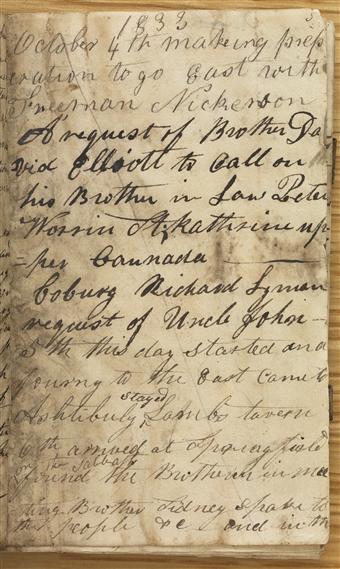 1833
October 4th making prep
eration to go East with
Freeman Nickerson
A request of Brother Da
vid Elliott to call on
his Brother in Law Peter
Worrin St. Kathrine up
=per Cannada
Coburg Richard Lyman
request of Uncle John —
5th this day started on a
journy to the East came to
Ashtibuly stayed Lambs tavern
6th arrived at Springfield
on the Sabath
found the Brotheren in mee
ting Brother Sidney spake to
the people &c and in the